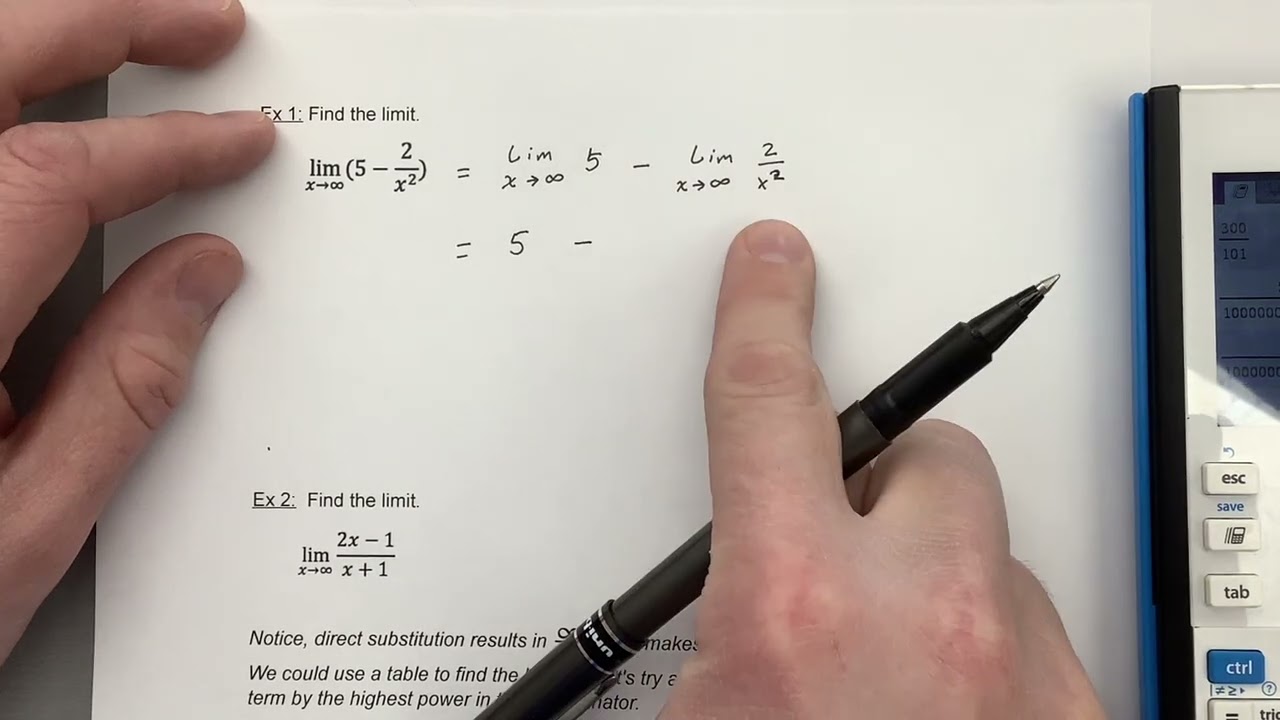 Ex 1: Find the limit.
lim x→∞ (5 − 2/x²) = Lim x→∞ 5 − Lim x→∞ 2/x²
= 5 −
Ex 2: Find the limit.
lim x→∞ (2x − 1)/(x + 1)
Notice, direct substitution results in makes
We could use a table to find the try
term by the highest power in
uni
300
101
1000000
1000000
esc
save
tab
ctrl